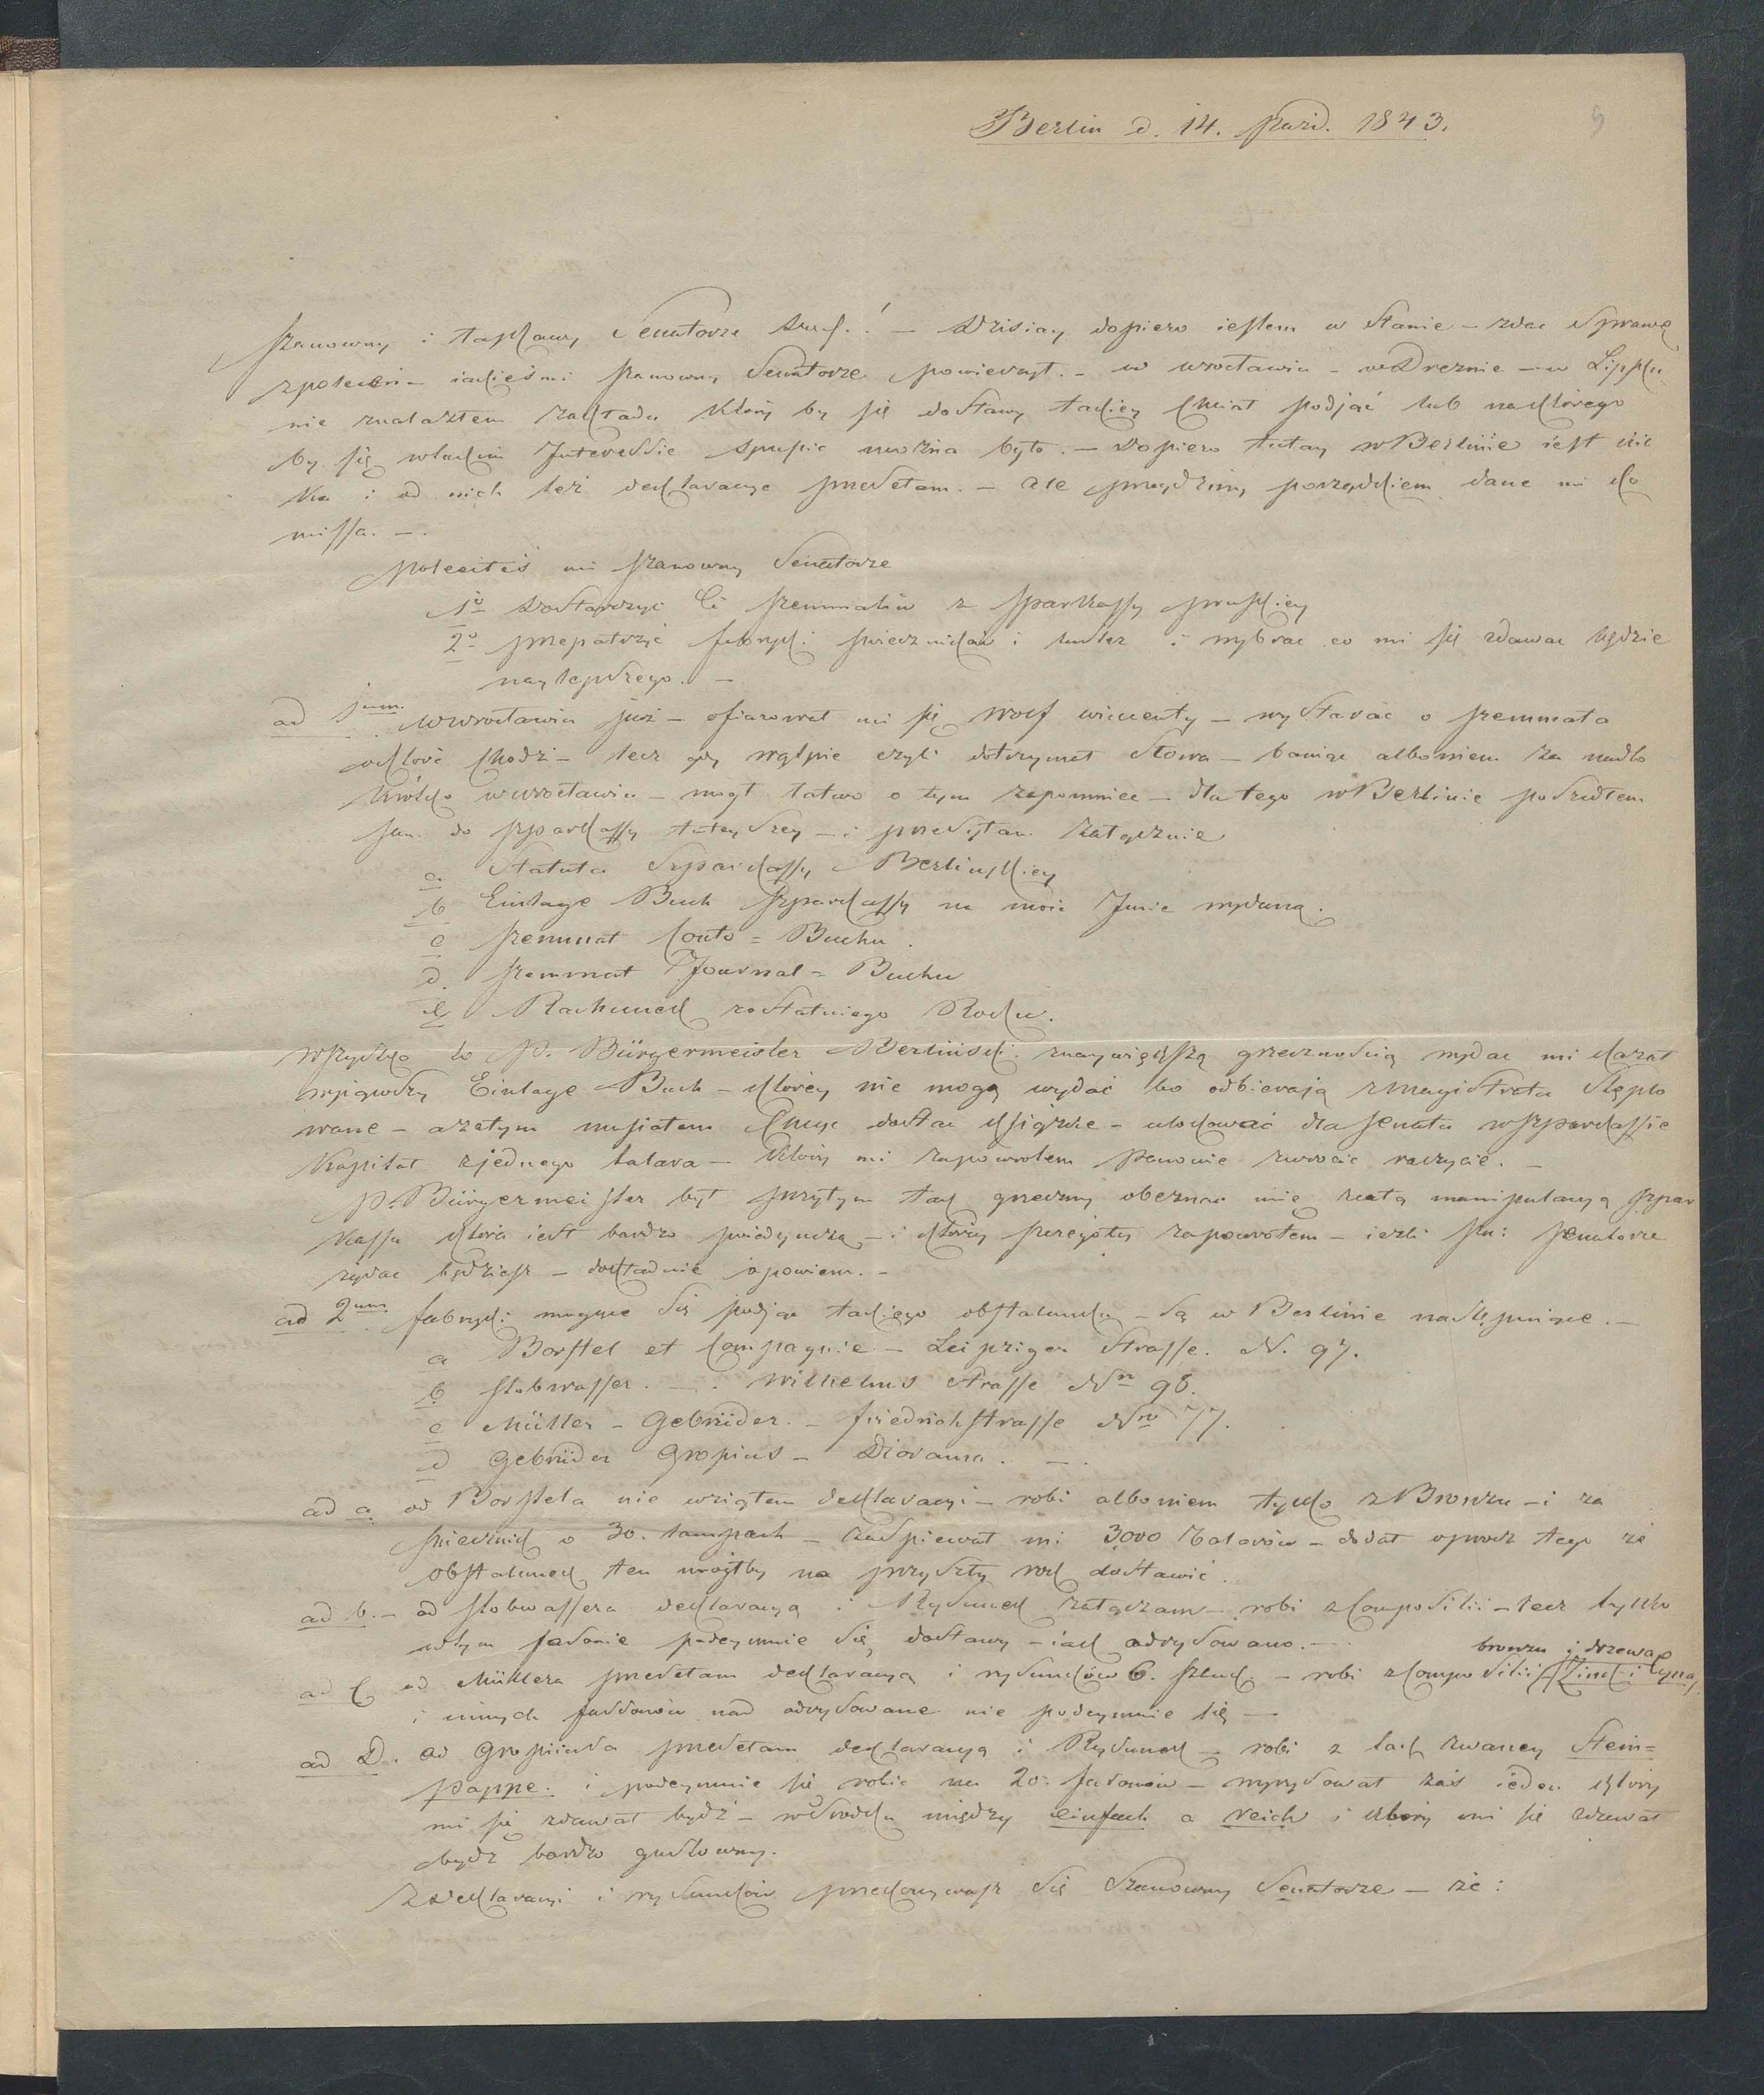 Berlin d. 14. Paźd. 1843.
9
Szanowny i łaskawy Senatorze ! — Dzisiay dopiero iestem w stanie — zdać Sprawę
zpoleceń — iakieś mi Szanowny Senatorze powierzył. — w wrocławiu — w Dreznie — w Lipsku
nie znalazłem zakładu któryby się dostawy takiey chciał podjąć lub na którego
by się w takim Interessie spuścić można było. — Dopiero tutay w Berlinie iest
ka i od nich też deklaracye przesełam. — ale przeydzmy porządkiem dane mi ko
missa. —
Poleciłeś mi Szanowny Senatorze
1o Dostarczyć Ci szemmatów z Sparkassy pruskiey
2o przepatrzyć fabryki świeczników i luster i wybrać co mi się zdawać będzie
naylepszego. —
ad 1mum. w wrocławiu już — ofiarował mi się Wolf wincenty — wystarać o szemmata
o które chodzi — lecz gdy wątpię czyli dotrzymał słowa — bawiąc albowiem za nadto
krótko w wrocławiu — mógł łatwo o tym zapomnieć — dla tego w Berlinie poszedłem
sam do Szparkassy tuteyszey — i przesyłam załącznie
a Statuta Szparkassy Berlinskiey
b Einlage Buch Szparkassy na moie Imie wydaną.
c szemmat Conto = Buchu.
d. szemmat Journal = Buchu
e Rachunek zostatniego Roku.
wszystko to P. Bürgermeister Berliński znaywiększą grzecznością wydać mi kazał
wyiąwszy Einlage Buch — którey nie mogą wydać bo odbierają z Magistratu stęplo
wane — a zatym musiałem chcąc dostać książkę — ulokować dla senatu w Szparkassie
Kapitał zjednego talara — który mi zapowrotem Panowie zwrócić raczycie. —
P. Bürgermeister był przytym tak grzeczny obeznać mię z całą manipulacyą Szpar
kassy która iest bardzo poiedyncza — i którey szczegóły zapowrotem — iezli Pan Senatorze
żądać będziesz — dokładnie opowiem. —
ad 2um. fabryki mogące się podjąć takiego obstalunku — są w Berlinie następuiące. —
a Borstel et Compagnie — Leipziger Strasse. N. 97.
b Stobwasser. —. Wilhelms Strasse Nro 98.
c Müller — Gebrüder. — Friedrichstrasse Nro 77.
d Gebrüder Gropius — Diorama. —.
ad a od Borstela nie wziąłem deklaracyi — robi albowiem tylko z Bronzu — i za
świecznik o 30. lampach — zaśpiewał mi 3,000 Talarów — dodał oprocz tego że
obstalunek ten mógłby na przyszły rok dostawić.
ad b. — od Stobwassera deklaracyą i Rysunek załączam — robi z Compositii — lecz tylko
w tym fasonie podeymuie się dostawy — iak odrysowano. —
bronzu i drzewa
ad C od Müllera przesełam deklaracyą i rysunków 6. sztuk — robi z compositii / Zink i Cyna /
i innych fassonów nad odrysowane nie podeymuie się —
ad D. od Gropiusa przesełam deklaracyą i Rysunek — robi z tak zwaney Stein=
pappe. i podeymuie się robić na 20. fasonów — wyrysował zaś ieden który
mi się zdawał bydź — w środku między einfach a reich i który mi się zdawał
bydź bardzo gustowny.
Z deklaracyi i rysunków przekonywasz się Szanowny Senatorze — że: